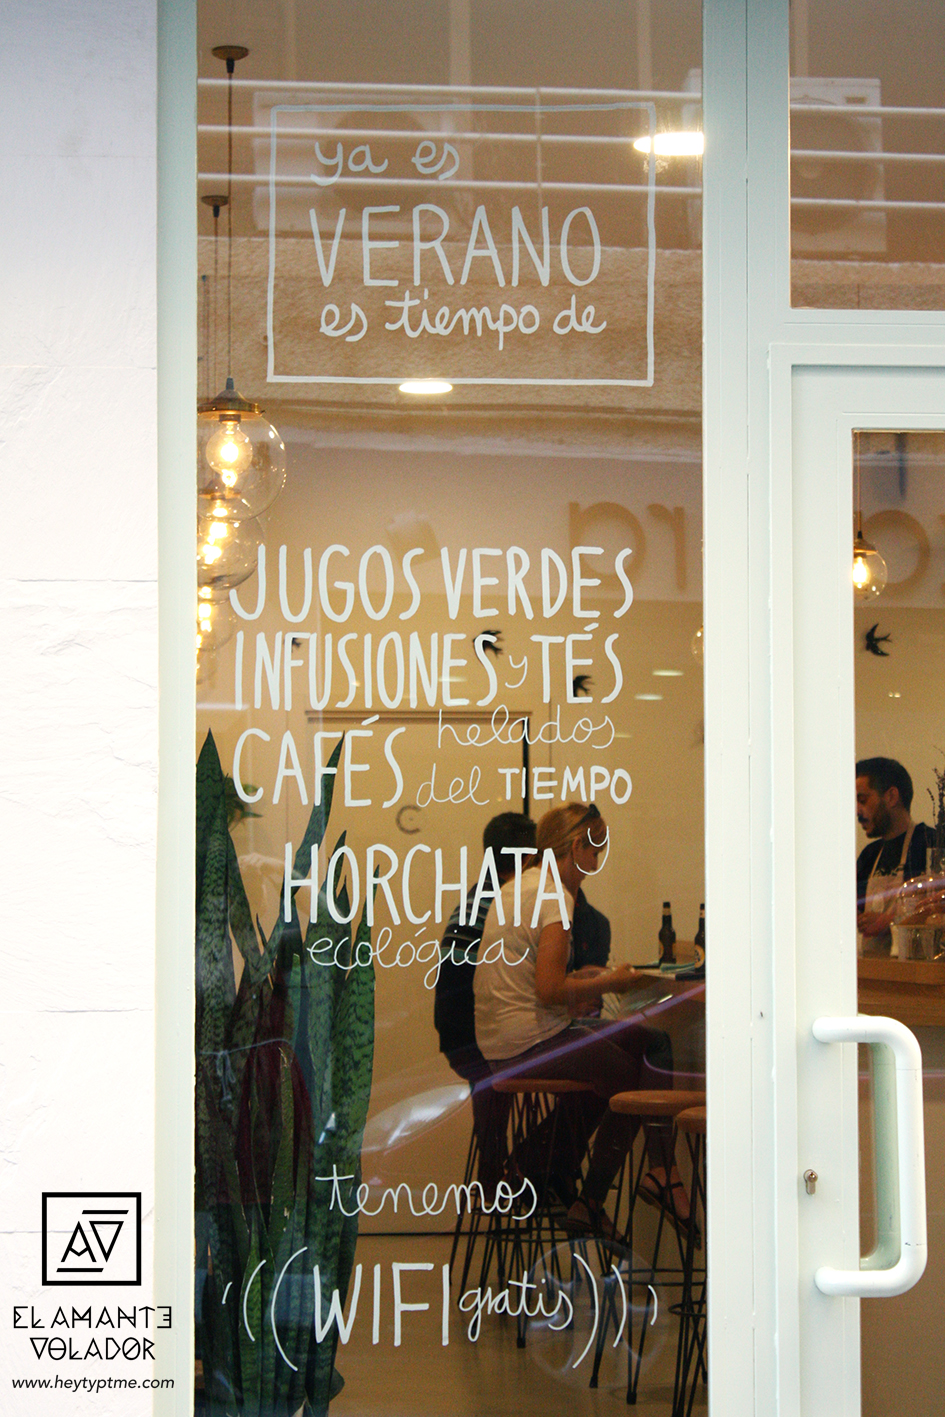 ya es
VERANO
es tiempo de
JUGOS VERDES
INFUSIONES y TÉS
CAFÉS helados
del TIEMPO
y
HORCHATA
ecológica
tenemos
(((WIFI gratis)))
AV
EL AMANTE
VOLADOR
www.heytyptme.com